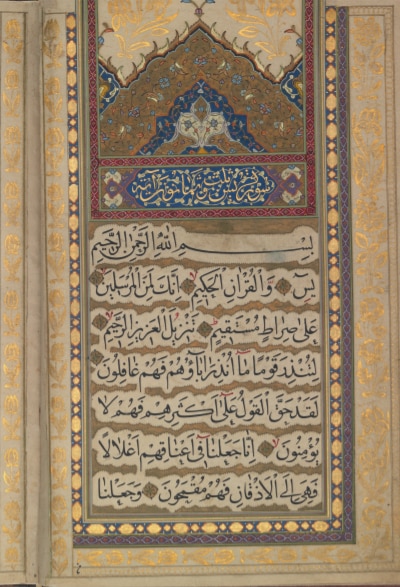 سورة يس
بِسْمِ اللهِ الرَّحْمٰنِ الرَّحِيمِ
يٰسٓ وَالْقُرْاٰنِ الْحَكِيمِ اِنَّكَ لَمِنَ الْمُرْسَلِينَ
عَلٰى صِرَاطٍ مُسْتَقِيمٍ تَنْزِيلَ الْعَزِيزِ الرَّحِيمِ
لِتُنْذِرَ قَوْمًا مَآ اُنْذِرَ اٰبَاؤُهُمْ فَهُمْ غَافِلُونَ
لَقَدْ حَقَّ الْقَوْلُ عَلٰٓى اَكْثَرِهِمْ فَهُمْ لَا
يُؤْمِنُونَ اِنَّا جَعَلْنَا فِٓى اَعْنَاقِهِمْ اَغْلَالًا
فَهِىَ اِلَى الْاَذْقَانِ فَهُمْ مُقْمَحُونَ وَجَعَلْنَا